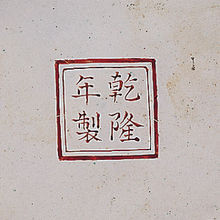 乾隆
年製